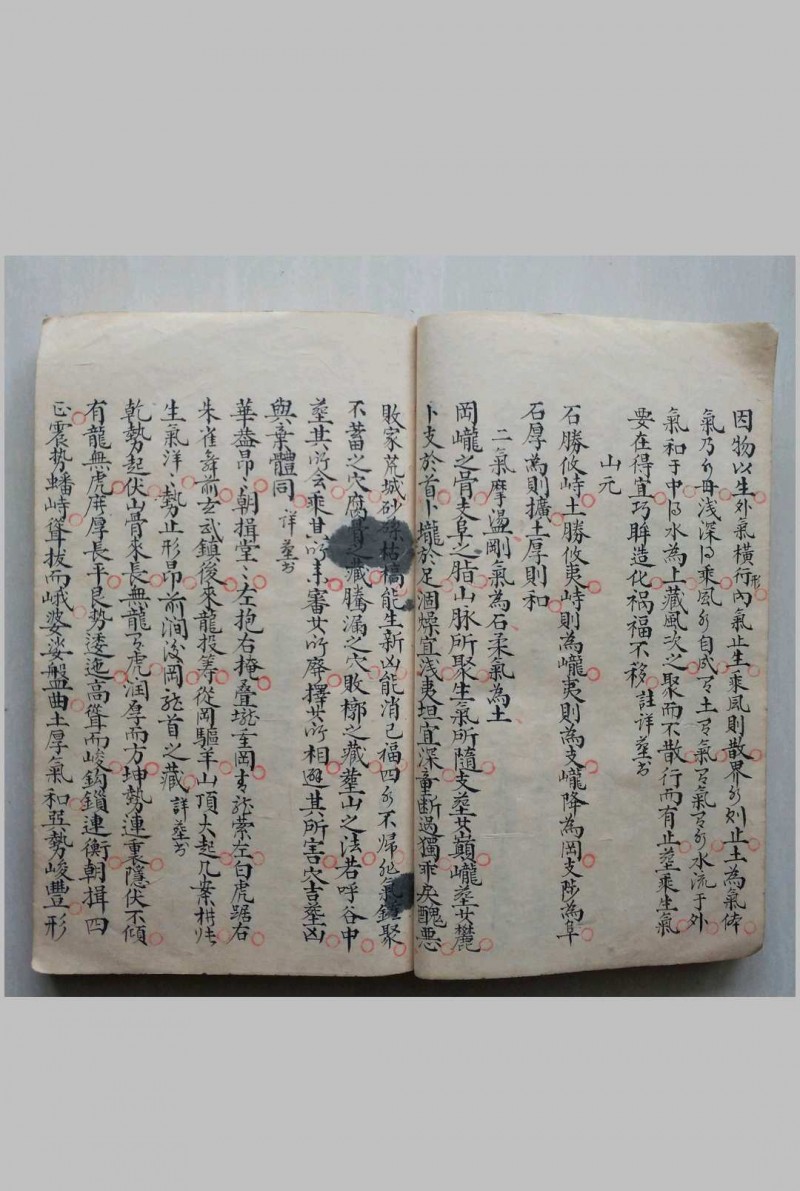 因物以生外氣橫行形內氣止生乘風則散界水則止土為氣体
氣乃水母浅深得乘風水自成有土有氣有氣有水流于外
氣和于中得水為上藏風次之聚而不散行而有止塟乘生氣
要在得宜巧眸造化禍福不移註詳塟书
山元
石勝攸峙土勝攸夷峙則為巄夷則為支巄降為岡支陟為阜
石厚為則擴土厚則和
二氣摩盪剛氣為石柔氣為土
岡巄之骨支阜之脂山脉所聚生氣所隨支塟其巔巄塟其麓
卜支於首卜壠於足涸燥宜浅夷坦宜深童断過獨乖戾醜悪
敗家荒城砂 枯槁能生新凶能消已福四水不歸 氣 聚
不蓄之穴腐骨之藏騰漏之穴敗槨之藏塟山之法若呼谷中
塟其所会乘其所来審其所廢擇其所相避其所害穴吉塟凶
與棄體同詳塟书
華盖昂〻朝揖堂〻左抱右掩叠壠重岡青龙蒙左白虎踞右
朱雀舞前玄武鎮後來龍投等從岡驅羊山頂大起几案
生氣洋〻勢止形昂前澗後岡龙首之藏詳塟书
乾勢起伏山骨來長無龍有虎润厚而方坤勢連裏隱伏不傾
有龍無虎庳厚長平艮勢逶迤高聳而峻鈎鎖連衡朝揖四
正震势蟠峙聳拔而峨婆娑盤曲土厚氣和巽勢峻豐形